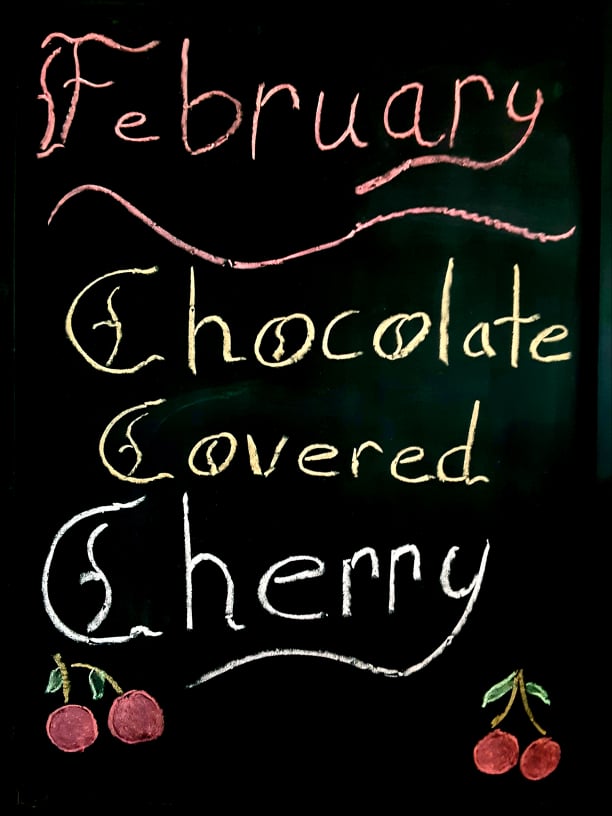 February
Chocolate
Covered
Cherry